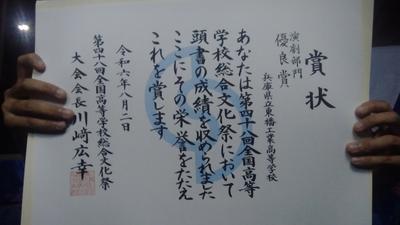 賞状
演劇部門
優良賞
兵庫県立東播工業高等学校
あなたは第四十八回全国高等
学校総合文化祭において
頭書の成績を収められました
ここにその栄誉をたたえ
これを賞します
令和六年八月二日
第四十八回全国高等学校総合文化祭
大会会長 川﨑広幸